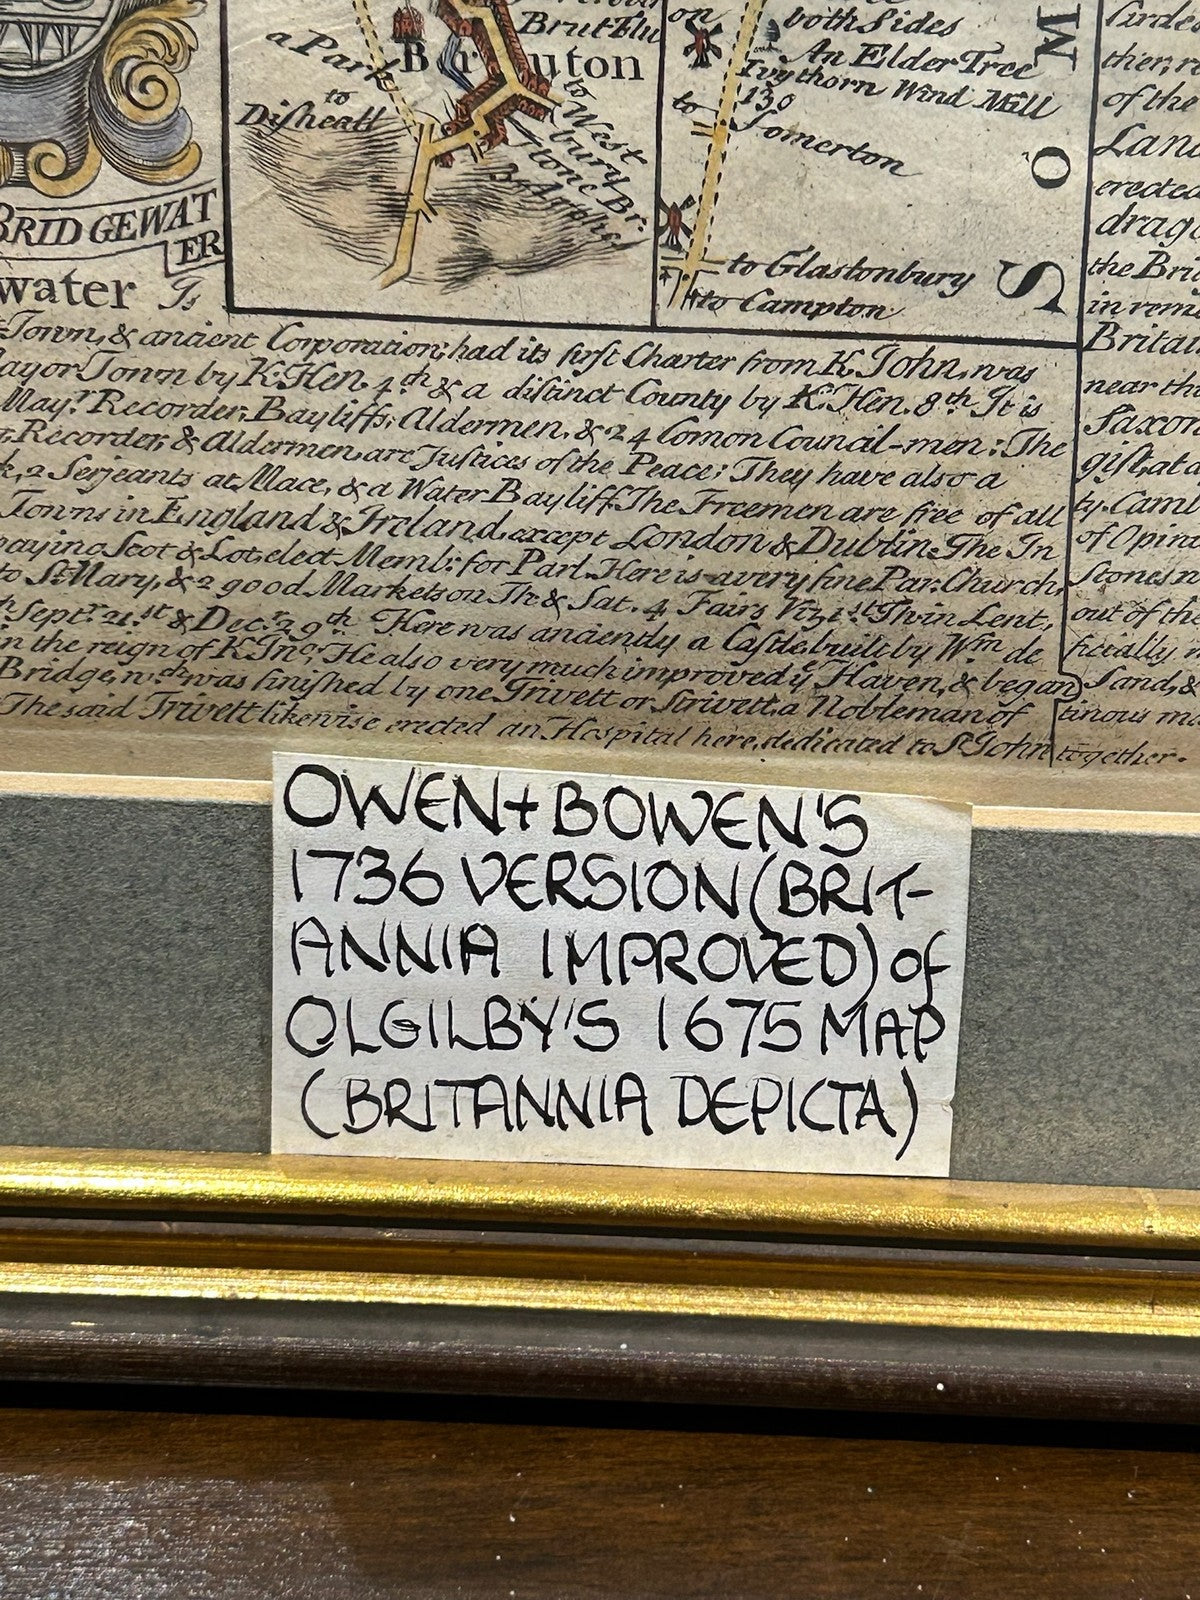 a Park
Bruton
Brut Flu
to
Disheatt
to West
bury
Stone Br.
on
both Sides
An Elder Tree
Ivythorn Wind Mill
130
to Somerton
to Glastonbury
to Campton
S O M
BRIDGEWAT
ER
water Is
Town, & ancient Corporation; had its first Charter from K. John, was
ayor Town by K. Hen. 4th & a distinct County by K. Hen. 8th It is
Mayr. Recorder, Bayliffs, Aldermen, & 24 Comon Council-men: The
r, Recorder, & Aldermen, are Justices of the Peace; They have also a
k, 2 Serjeants at Mace, & a Water Bayliff. The Freemen are free of all
Towns in England & Ireland, except London & Dublin. The In
paying Scot & Lot, elect Memb: for Parl. Here is a very fine Par. Church,
to St. Mary, & 2 good Markets on Th & Sat. 4 Fairs Viz 1st Th in Lent,
Septr. 21st & Decr. 29th Here was anciently a Castle, built by Wm de
n the reign of K. Jno. He also very much improved ye Haven, & began
Bridge, wch was finished by one Trivett or Strivett, a Nobleman of
The said Trivett likewise erected an Hospital here, dedicated to St John
of the
Land
erected
drag
the Bri
in rem
Britai
near th
Saxon
gist, at a
ty. Camb
of Opin
Stones n
out of the
ficially m
Sand, &
tinous m
together.
OWEN + BOWEN'S
1736 VERSION (BRIT-
ANNIA IMPROVED) of
OLGILBY'S 1675 MAP
(BRITANNIA DEPICTA)